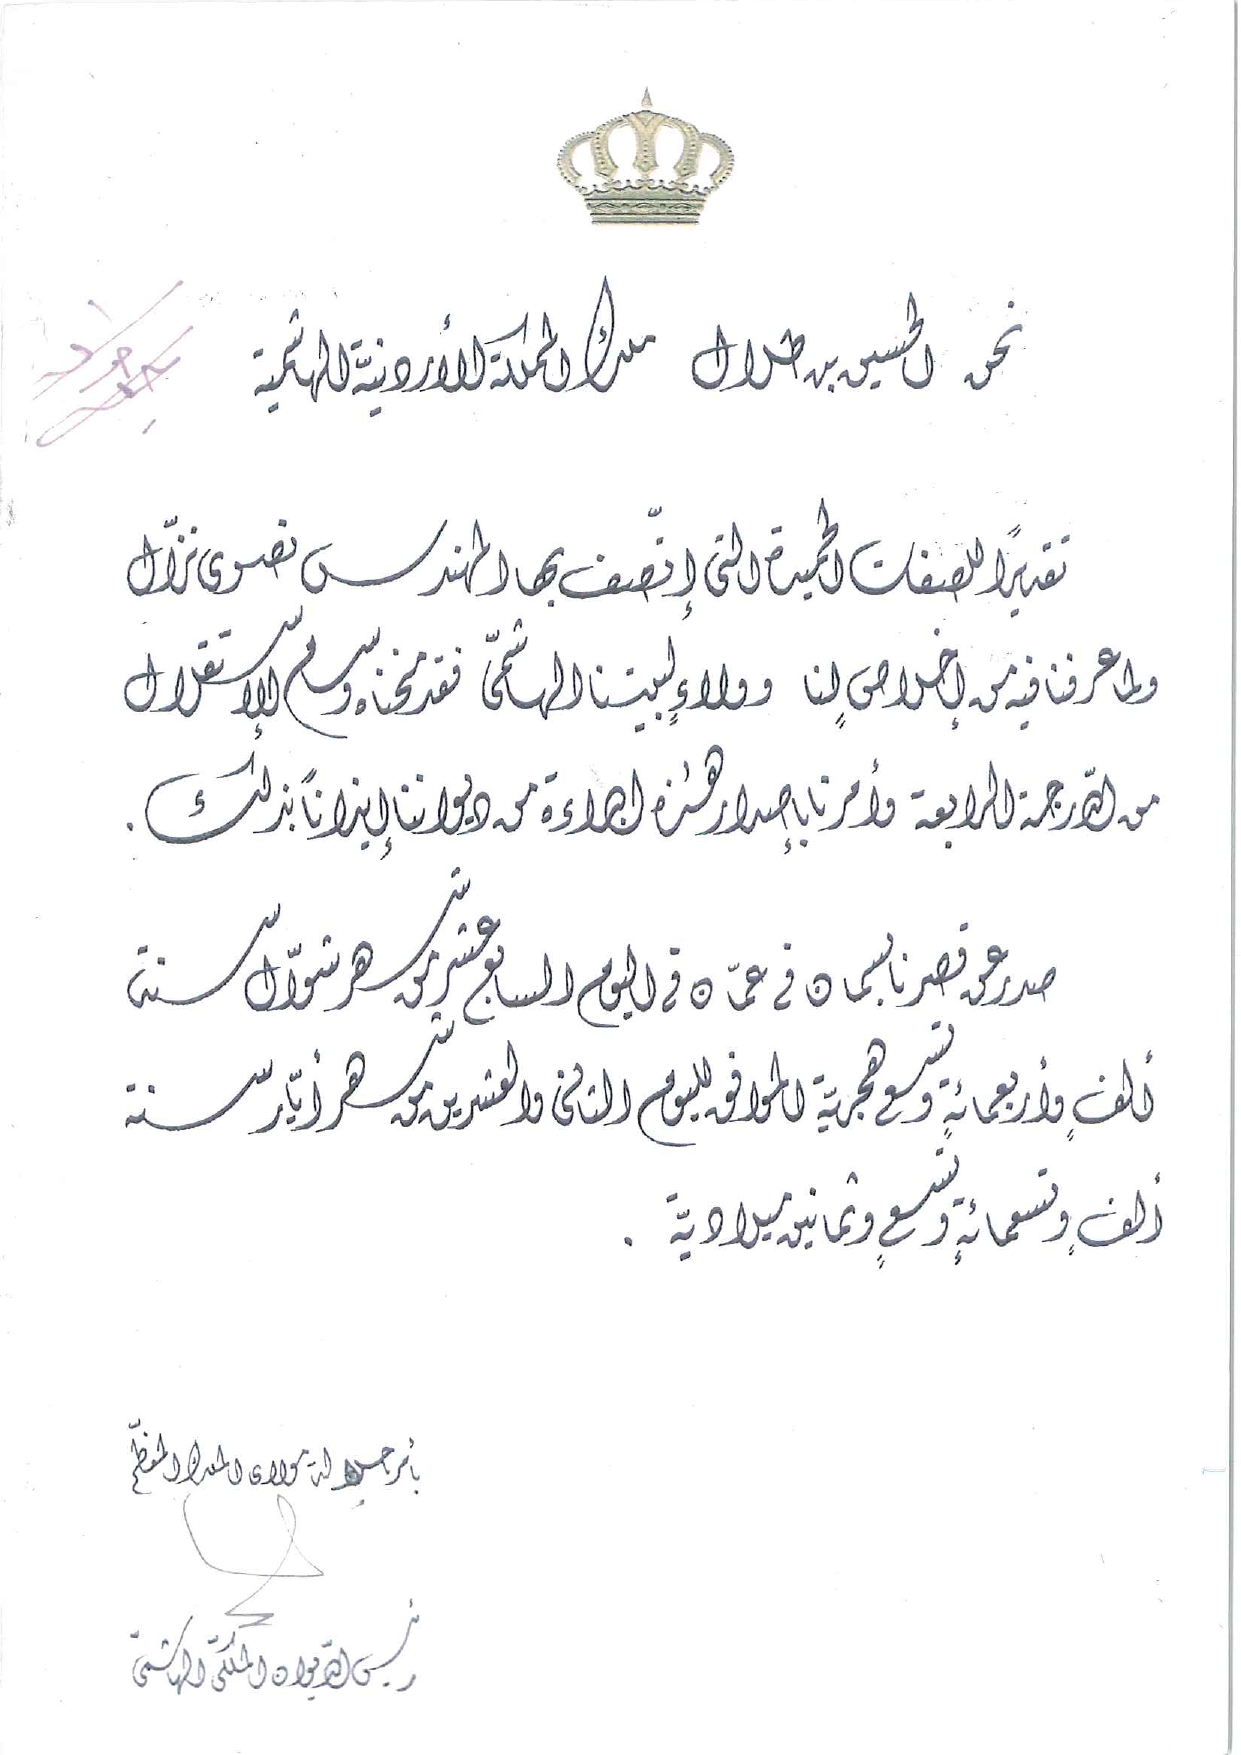 نحن الحسين بن طلال ملك المملكة الأردنيّة الهاشمية
تقديرًا للصفات الحميدة التي إتّصف بها المهندس نضوى نزّال
ولما عرفنا فيه من إخلاصٍ لنا وولاءٍ لبيتنا الهاشميّ فقد منحناه وسام الإستقلال
من الدّرجة الرابعة وأمرنا بإصدار هذه البراءة من ديواننا إيذانًا بذلك .
صدر عن قصرنا بسمان في عمّان في اليوم السابع عشر من شهر شوّال سنة
ألفٍ وأربعمائةٍ وتسع هجريّة الموافق لليوم الثاني والعشرين من شهر أيّار سنة
ألفٍ وتسعمائةٍ وتسعٍ وثمانين ميلاديّة .
بأمر جلالة مولاي الملك المعظّم
رئيس الدّيوان الملكيّ الهاشميّ